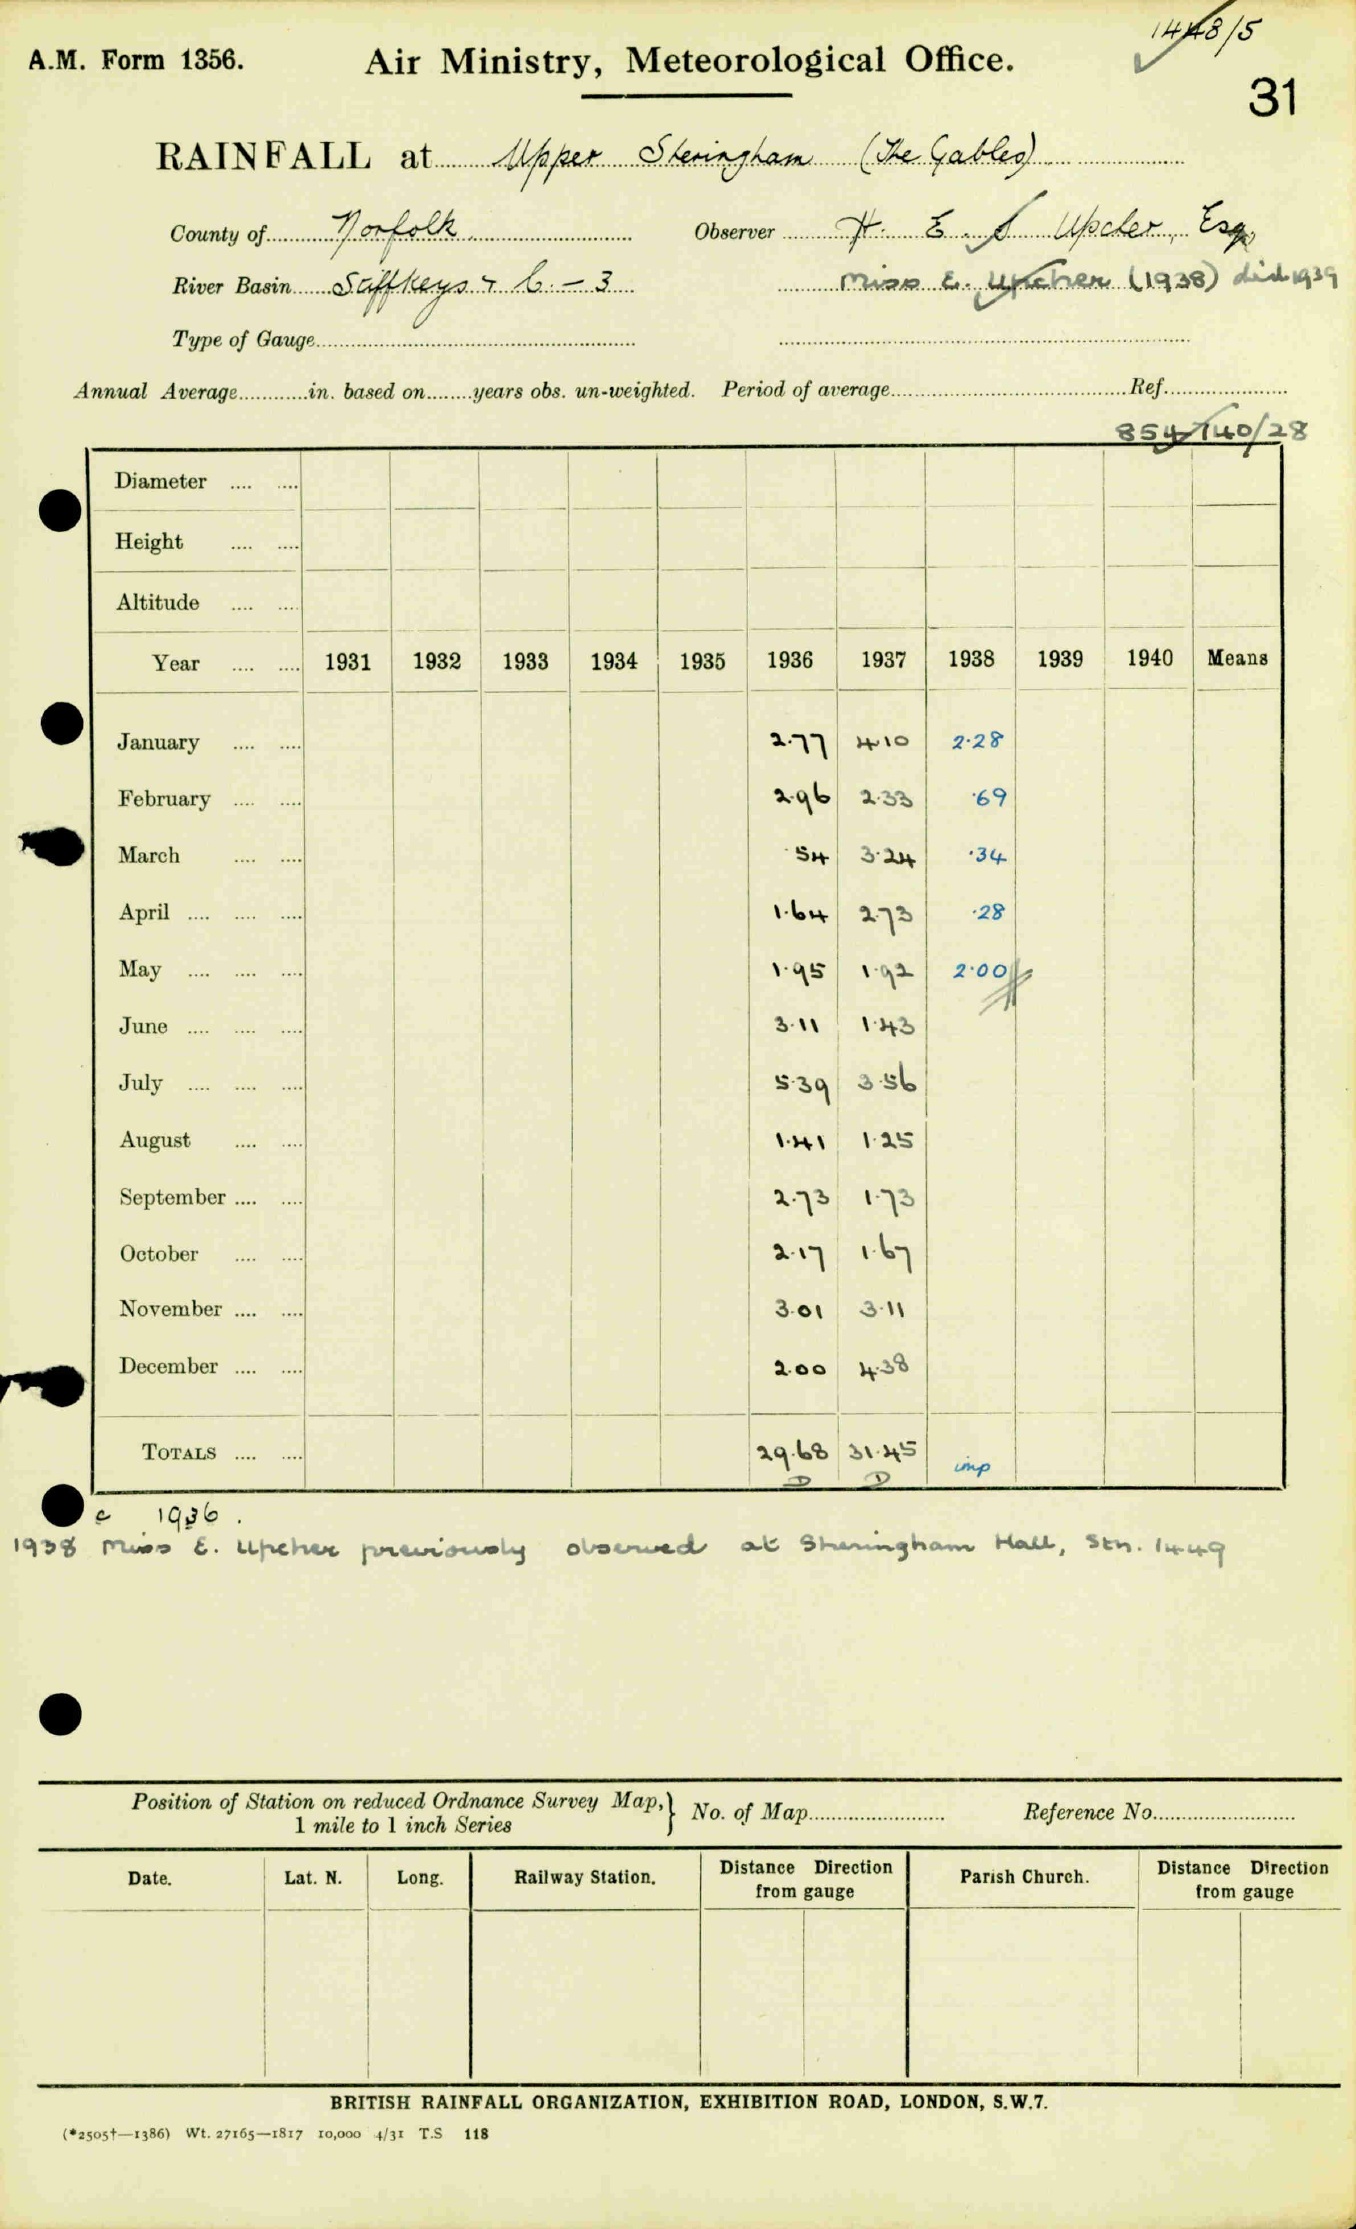 1448/5
A.M. Form 1356. Air Ministry, Meteorological Office.
31
RAINFALL at Upper Sheringham (The Gables)
County of Norfolk Observer H. E. S Upcher, Esq
River Basin Stiffkeys & C. — 3 Miss E. Upcher (1938) died 1939
Type of Gauge
Annual Average in. based on years obs. un-weighted. Period of average Ref.
854/140/28
Diameter
Height
Altitude
Year 1931 1932 1933 1934 1935 1936 1937 1938 1939 1940 Means
January 2.77 4.10 2.28
February 2.96 2.33 .69
March .54 3.24 .34
April 1.64 2.73 .28
May 1.95 1.92 2.00
June 3.11 1.43
July 5.39 3.56
August 1.41 1.25
September 2.73 1.73
October 2.17 1.67
November 3.01 3.11
December 2.00 4.38
TOTALS 29.68 31.45 imp
D D
c 1936.
1938 Miss E. Upcher previously observed at Sheringham Hall, Stn. 1449
Position of Station on reduced Ordnance Survey Map, } No. of Map Reference No.
1 mile to 1 inch Series
Date. Lat. N. Long. Railway Station. Distance Direction from gauge Parish Church. Distance Direction from gauge
BRITISH RAINFALL ORGANIZATION, EXHIBITION ROAD, LONDON, S.W.7.
(*2505†—1386) Wt. 27165—1817 10,000 4/31 T.S 118